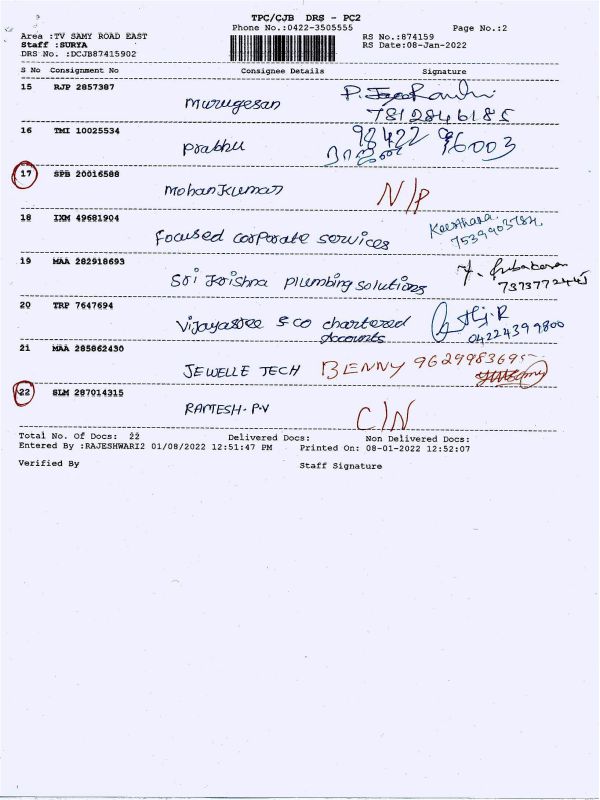 TPC/CJB DRS - PC2
Phone No.:0422-3505555 Page No.:2
Area :TV SAMY ROAD EAST RS No.:874159
Staff :SURYA RS Date:08-Jan-2022
DRS No. :DCJB87415902
S No Consignment No Consignee Details Signature
15 RJP 2857387
Murugesan 7812846185
16 TMI 10025534
Prabhu 98422 96003
17 SPB 20016588
Mohan Kumar N/P
18 IXM 49681904
Focused corporate services 7539903784
19 MAA 282918693
Sri Krishna plumbing solutions 7373772445
20 TRP 7647694
Vijayasree & co chartered
accounts 04224399800
21 MAA 285862430
JEWELLE TECH BENNY 962998369
22 SLM 287014315
RAMESH. P.V C/N
Total No. of Docs: 22 Delivered Docs: Non Delivered Docs:
Entered By :RAJESHWARI2 01/08/2022 12:51:47 PM Printed On: 08-01-2022 12:52:07
Verified By Staff Signature